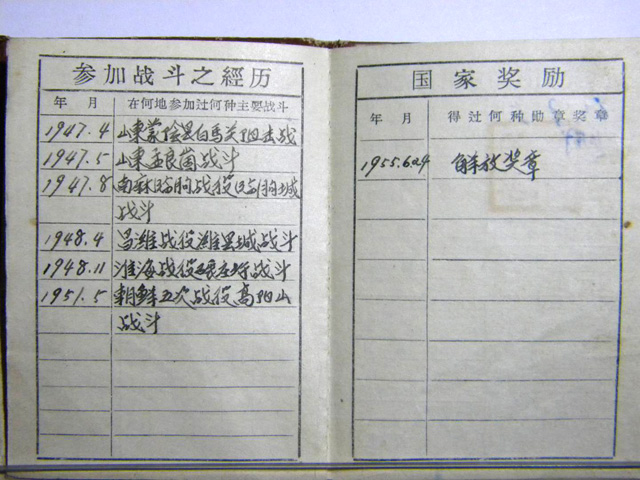 参加战斗之經历
年 月 在何地参加过何种主要战斗
1947.4 山東蒙陰县白马关阻击战
1947.5 山東孟良崮战斗
1947.8 南麻临朐战役临朐城
战斗
1948.4 昌潍战役潍县城战斗
1948.11 淮海战役碾庄圩战斗
1951.5 朝鲜五次战役高阳山
战斗
国家奖励
年 月 得过何种勋章奖章
1955.6.29 解放奖章